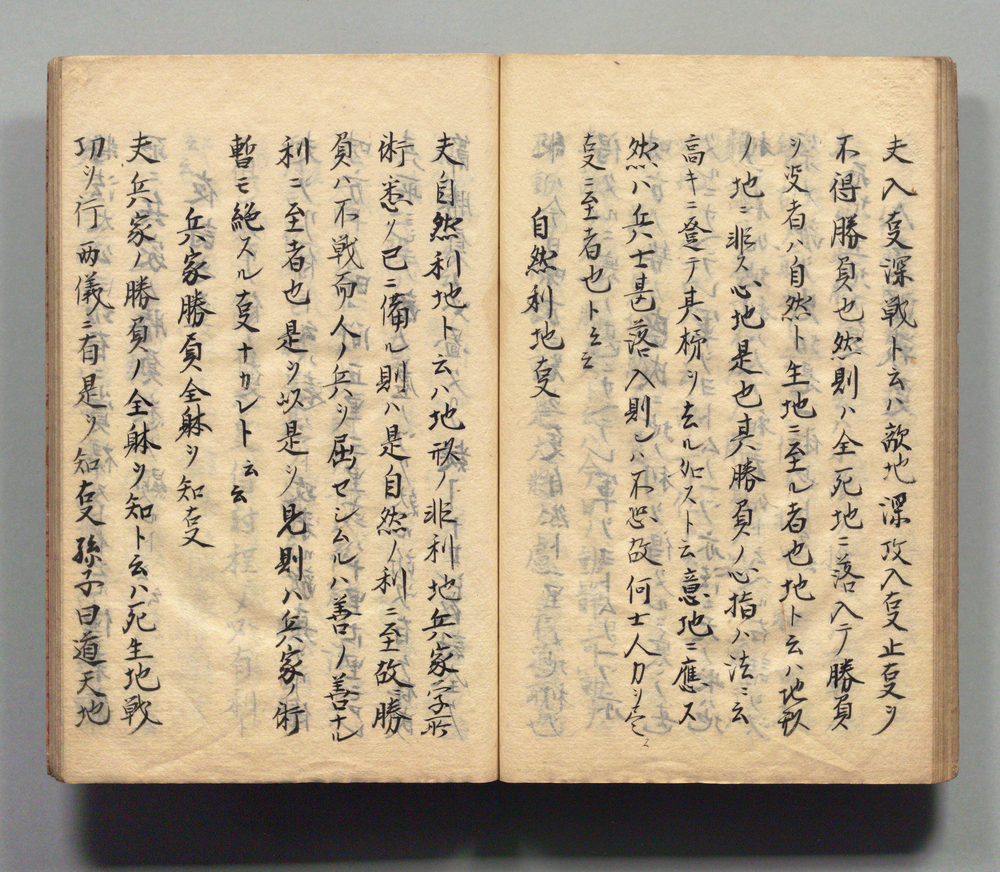 夫入叓深戦ト云ハ敵地深攻入叓止叓ヲ
不得勝負也然則ハ全死地ニ落入テ勝負
ヲ没者ハ自然ト生地ニ至ル者也地ト云ハ地形
ノ地ニ非ス心地是也真勝負ノ心指ハ法ニ云
高キニ登テ其梯ヲ去ル如スト云意地ニ應ス
然ハ兵士甚落入則ンハ不恐故何士人力ヲ尽
叓ニ至者也ト云云
自然利地叓
夫自然利地ト云ハ地形ノ非利地兵家字所
術悉ク己ニ備ル則ハ是自然ノ利ニ至故勝
負ハ不戦而人ノ兵ヲ屈セシムルハ善ノ善ナル
利ニ至者也是ヲ以是ヲ見則ハ兵家ノ術
暫モ絶スル叓ナカレト云云
兵家勝負全躰ヲ知叓
夫兵家ノ勝負ノ全躰ヲ知ト云ハ死生地戦
功ヲ行両儀ニ有是ヲ知叓孫子曰道天地